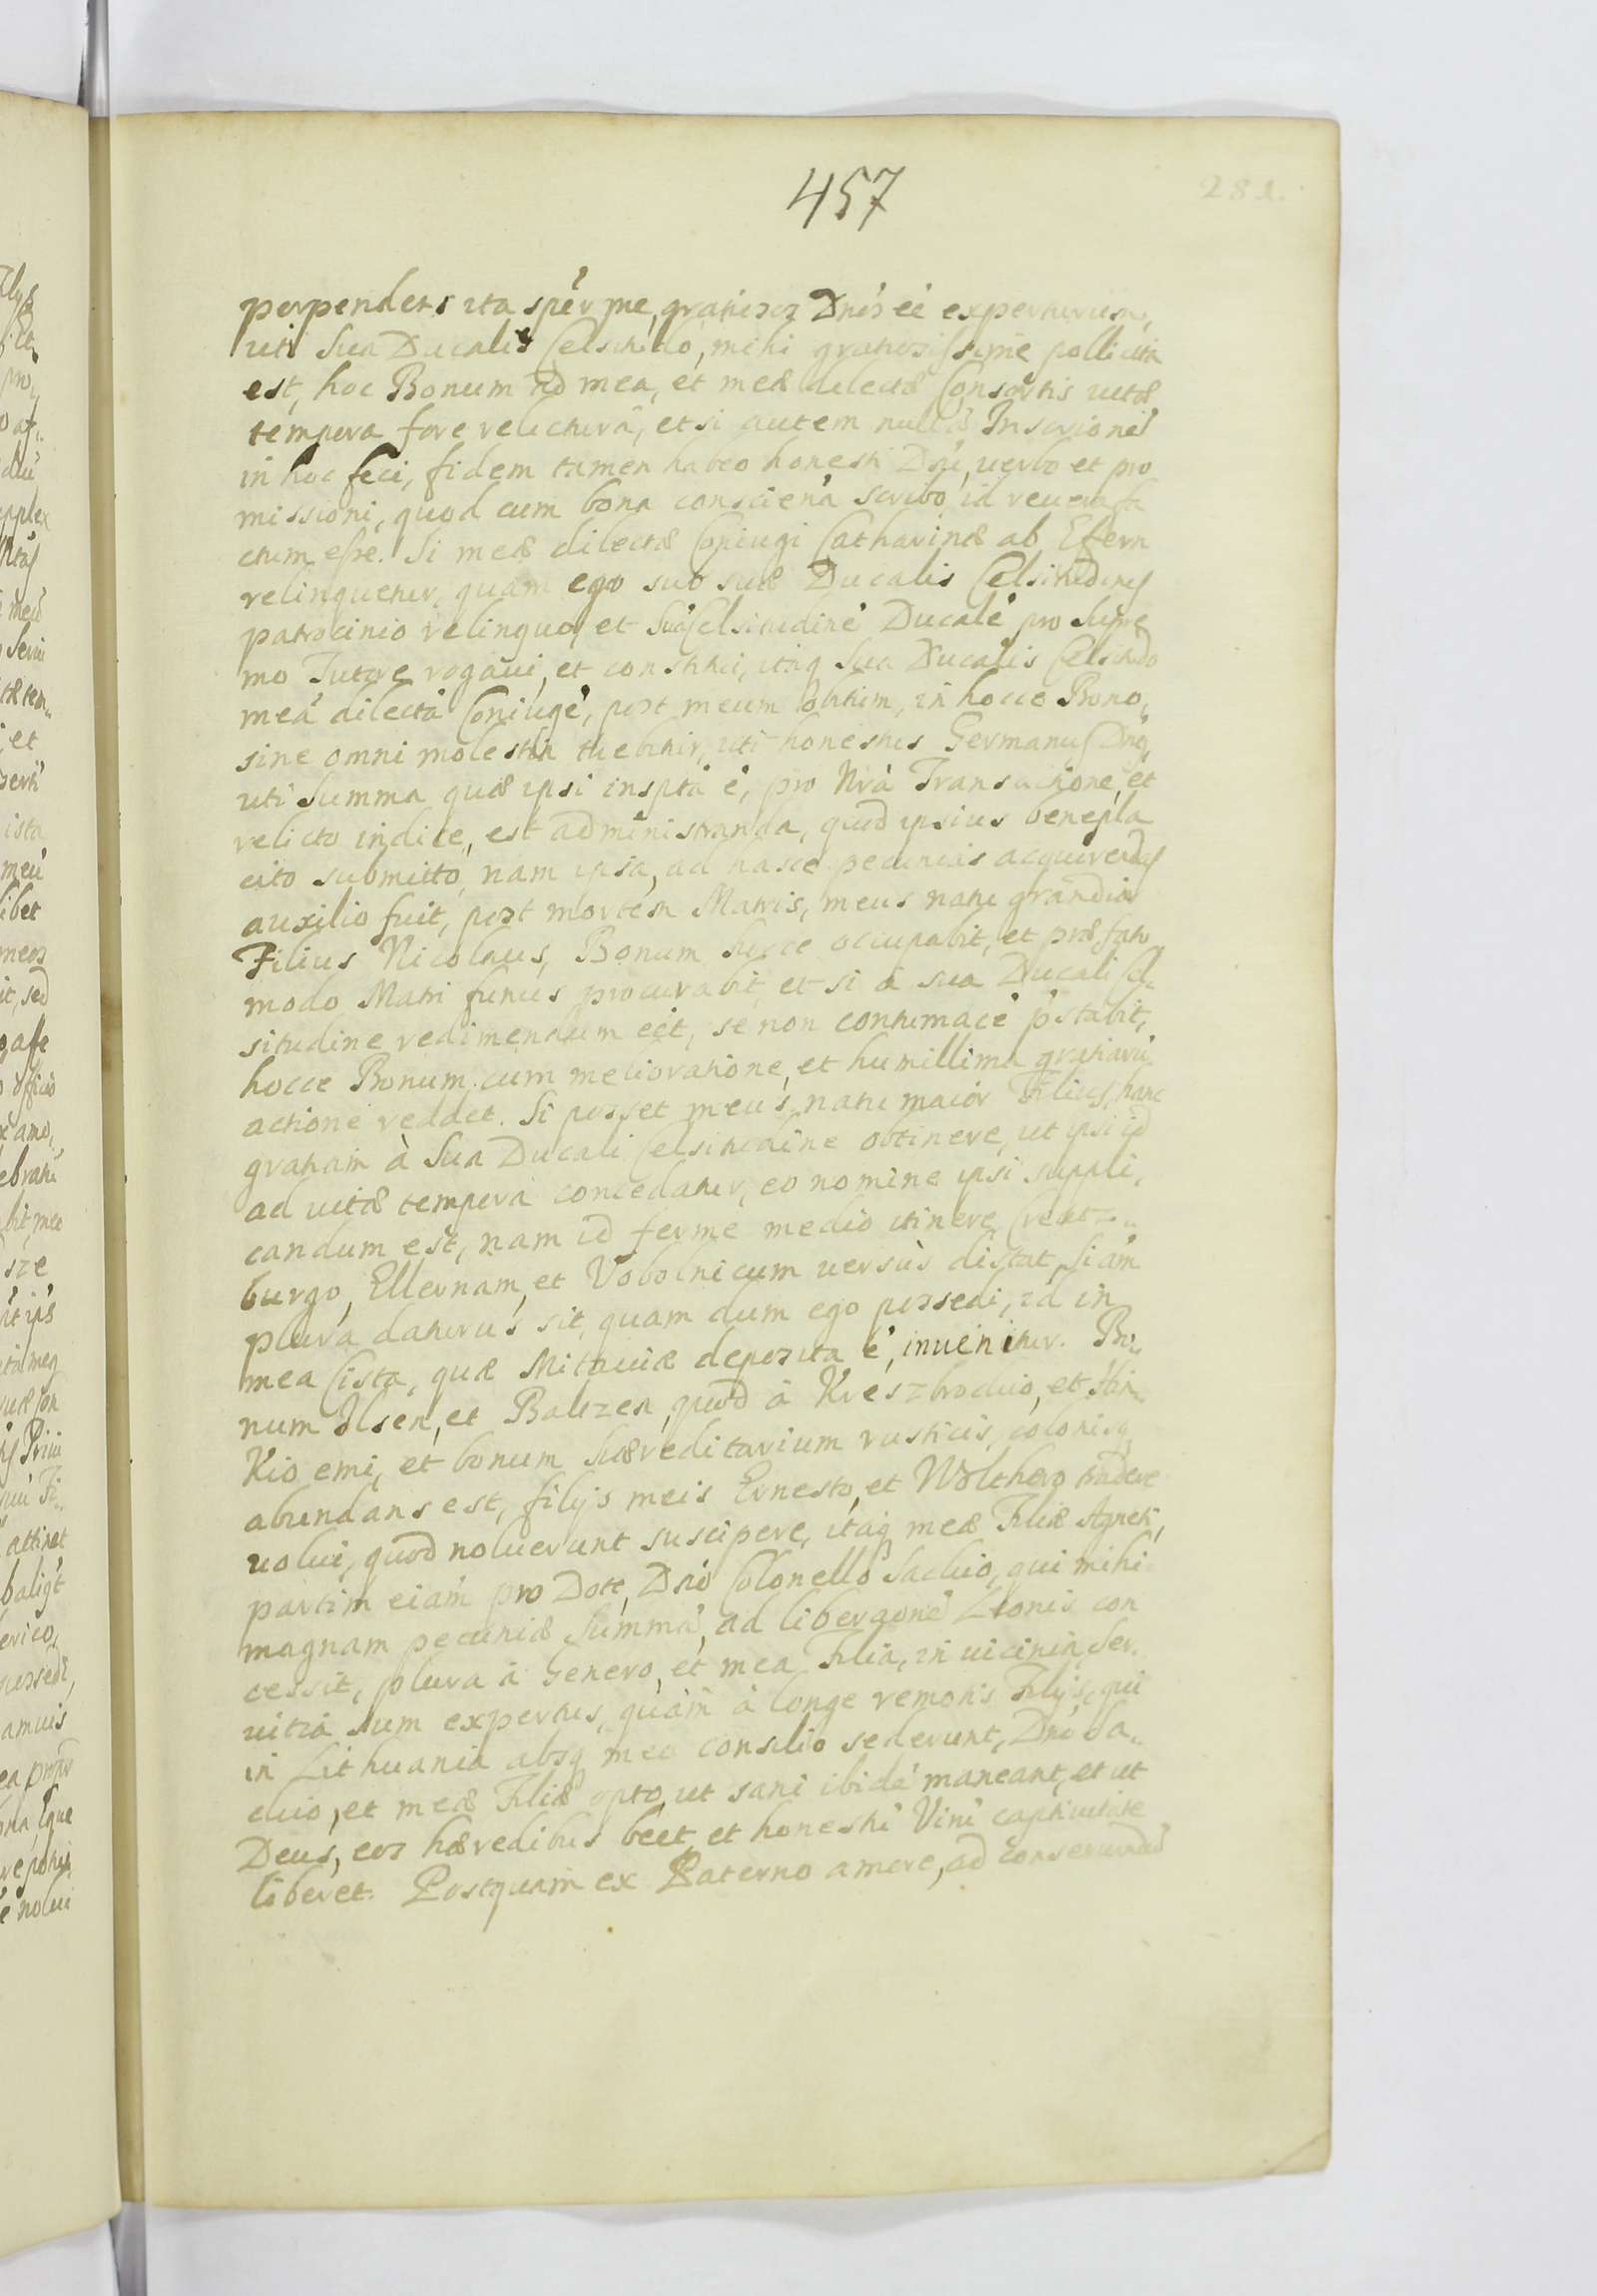 457
281.
perpendens ita spér me, gratiosoz Dnós eé experturum,
uti Sua Ducalis Celsitudo, mihi gratiosissime pollicita
est, hoc Bonum ad mea, et meæ dilectæ Consortis vitæ
tempora fore relicturá, etsi autem nullá Inscrionés
in hoc feci, fidem tamen habeo honesti Dñi, verbo et pro
missioni, quod cum bona conscieña scribo id revera fa
ctum esse. Si meæ dilectæ Coniugi Catharinæ ab Efern
relinquetur, quam ego sub suæ Ducalis Celsitudinis
patrocinio relinquo, et Suá Celsitudiné Ducalé pro Supre
mo Tutore rogaui, et constitui, itaq Sua Ducalis Celsitudo
meá dilectá Coniugé, post meum obitum, in hocce Bono,
sine omni molestia tuebitur, uti honestus Germanus Dnús,
uti Summa quæ ipsi insptá é, pro Nrá Transactione, et
relicto indice, est administranda, quod ipsius benepla
cito submitto, nam ipsa, ad hasce pecunias acquirendas
auxilio fuit, post mortem Matris, meus natu grandior
Filius Nicolaus, Bonum hocce occupabit, et præfato
modo Matri funus procurabit, et si á sua Ducali Cel..
situdine redimendum erit, se non contumacé pstabit,
hocce Bonum cum melioratione, et humillima gratiarú
actioné reddet. Si posset meus natu maior Filius, hanc
gratiam à Sua Ducali Celsitudine obtinere, ut ipsi id
ad vitæ tempora concedatur, eo nomine ipsi suppli,
candum est, nam id fermé medio itinere Creutz..
burgo, Ellernam, et Vobolnicum versùs distat, Si am
plura daturus sit, quam dum ego possedi, id in
mea Cista, quæ Mitaviæ deposita é, invenitur. Bo..
num Ilsen, et Baltzen, quod à Kreszbrodvio, et Hin..
Kio emi, et bonum hæreditarium rusticis, colonisq
abundans est, filijs meis Ernesto, et Wolthero tradere
volui, quod noluerunt suscipere, itaq meæ Filiæ Agneti,
partim eiam pro Dote, Dnó Colonello Sacluio, qui mihi
magnam pecuniæ Summá, ad liberaoné Zionis con
cessit, plura à Genero, et mea Filia, in vicinia Ser.
vitia sum expertus, quàm à longe remotis Filijs, qui
in Lithuania absq meo consilio sederunt, Dnó Sa..
cluio, et meæ Filiæ opto, ut sani ibidé maneant, et ut
Deus, eos hæredibus beet, et honesti Viní captivitate
liberet. Postquam ex Paterno amore, ad conservandá